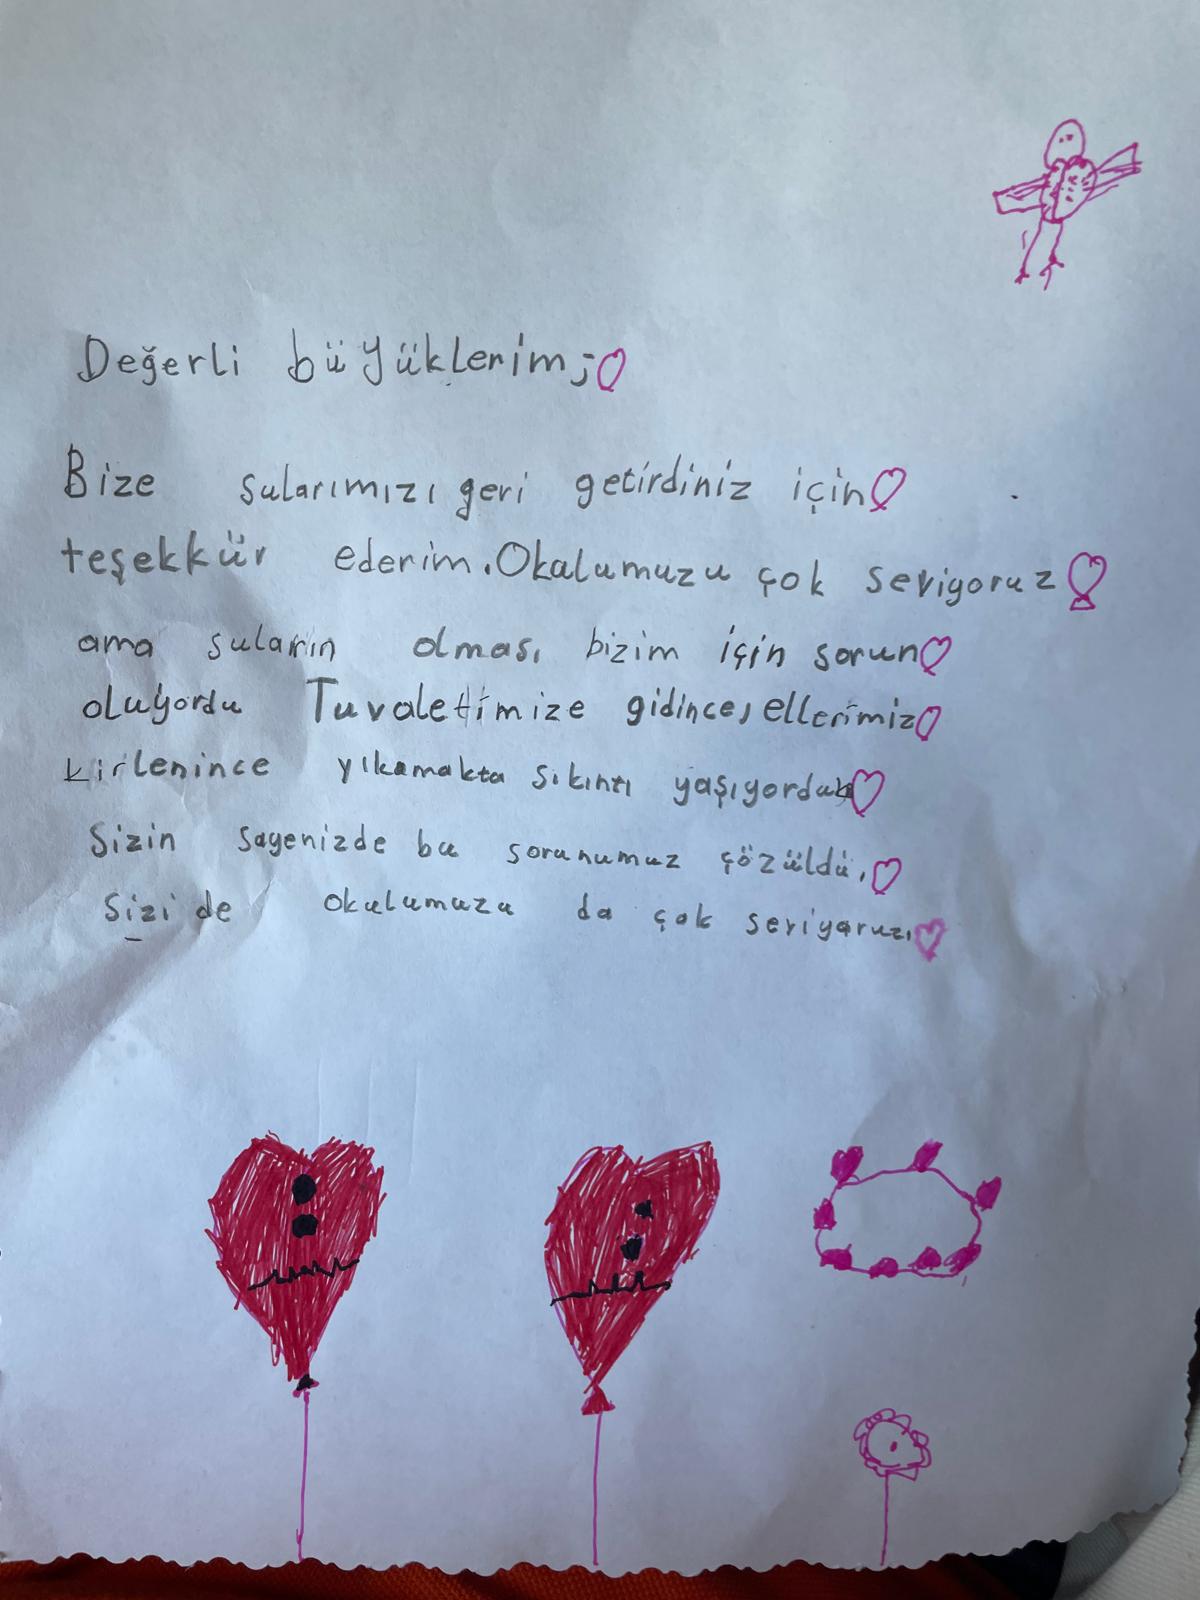 Değerli büyüklerim;
Bize sularımızı geri getirdiniz için
teşekkür ederim. Okalumuzu çok seviyoruz
ama suların olması bizim için sorun
oluyordu Tuvaletimize gidince, ellerimiz
kirlenince yıkamakta sıkıntı yaşıyorduk
Sizin sayenizde bu sorunumuz çözüldü.
Sizi de okulumuzu da çok seviyoruz.